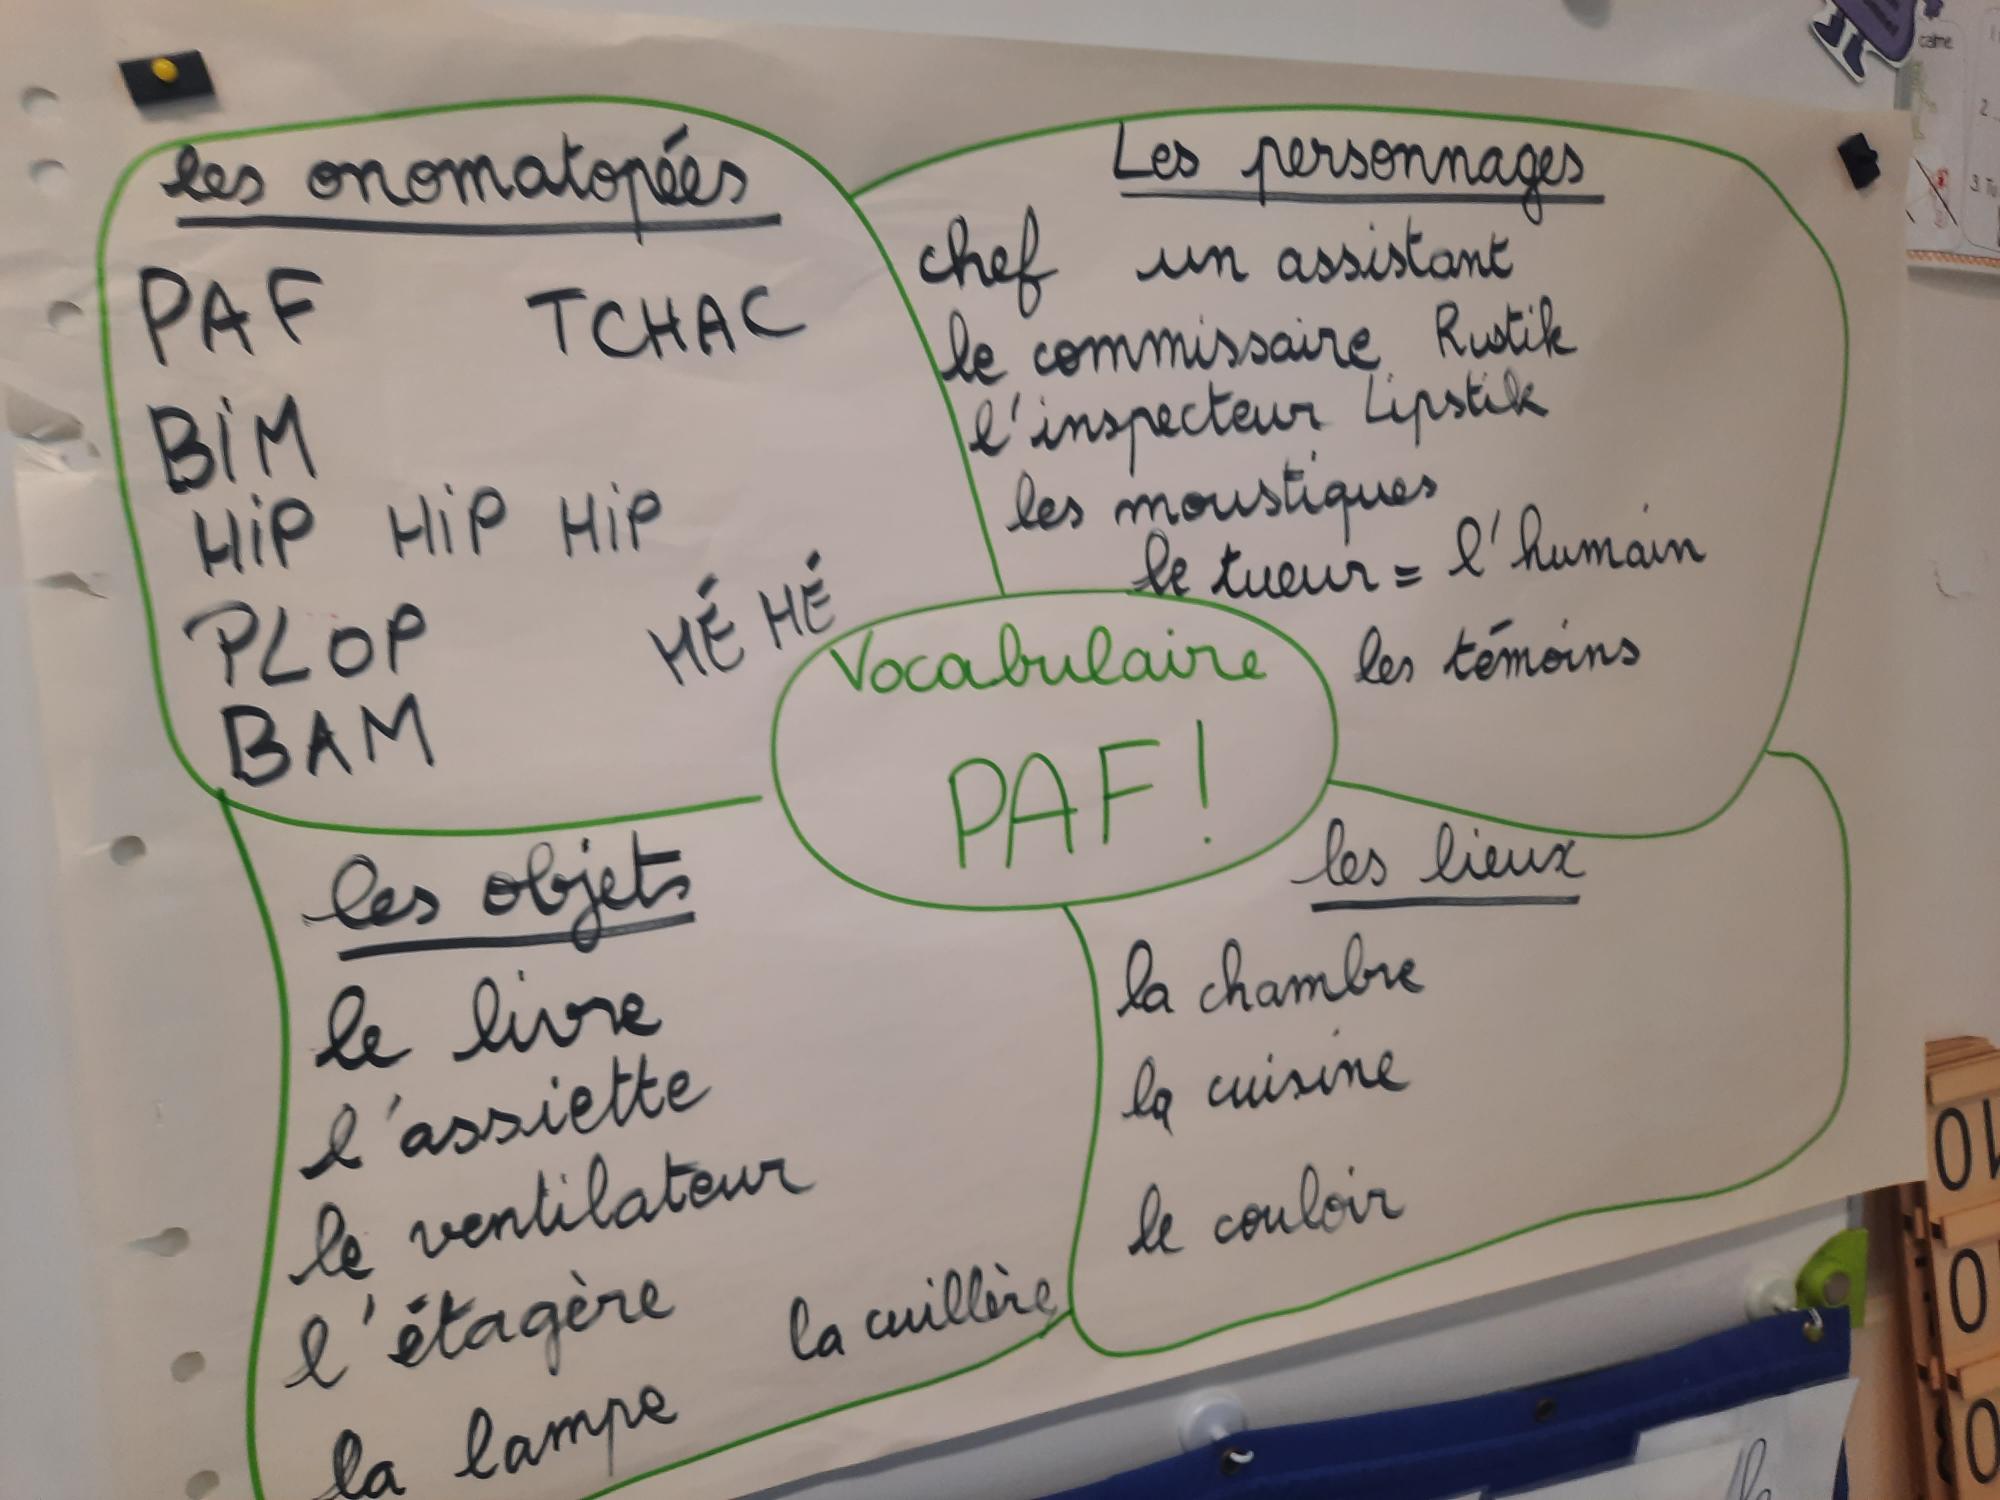 les onomatopées
PAF TCHAC
BIM
HIP HIP HIP
PLOP HÉ HÉ
BAM
Les personnages
chef un assistant
le commissaire Rustik
l'inspecteur Lipstik
les moustiques
le tueur = l'humain
les témoins
Vocabulaire
PAF !
les objets
le livre
l'assiette
le ventilateur
l'étagère la cuillère
la lampe
les lieux
la chambre
la cuisine
le couloir
calme
2.
3. Tu